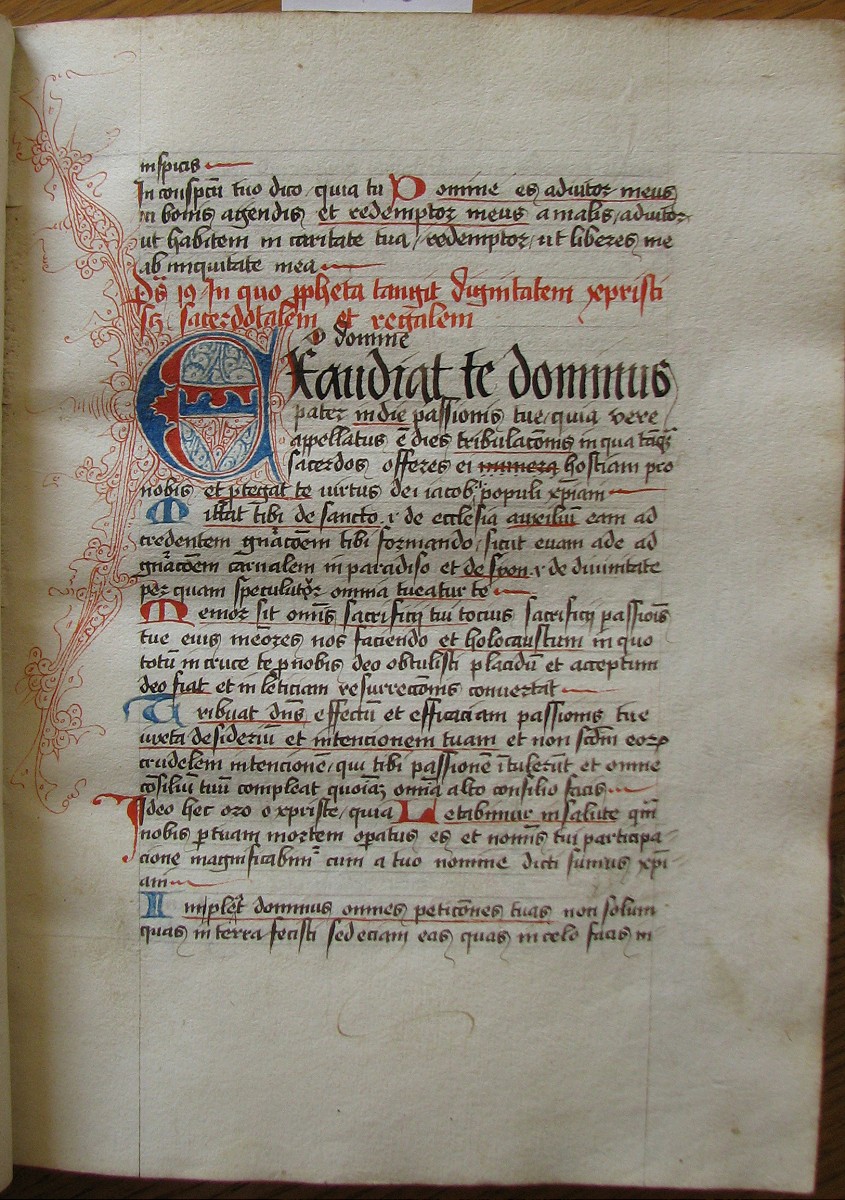 inspicis
In conspectu tuo dico quia tu Domine es adiutor meus
in bonis agendis et redemptor meus a malis, adiutor
ut habitem in caritate tua, redemptor, ut liberes me
ab iniquitate mea
Ps 19 In quo ppheta tangit dignitatem xpristi
sz sacerdotalem et regalem
O domine
Exaudiat te dominus
pater in die passionis tue, quia vere
appellatus ē dies tribulacōnis in qua
sacerdos offeres ei munera hostiam pro
nobis et ptegat te virtus dei iacob populi xpiani
Mittat tibi de sancto .i. de ecclesia auxiliū eam ad
credentem gnācōem tibi formando, sicut evam ade ad
gnācōem carnalem in paradiso et de syon .i. de divinitate
per quam speculator omnia tueatur te
Memor sit omīs sacrificij tui tocius sacrificij passiois
tue euis meōres nos faciendo et holocaustum in quo
totū in cruce te p nobis deo obtulisti placidū et acceptum
deo fiat et in leticiam resurreccōnis convertat
Tribuat dn̄s effectū et efficaciam passionis tue
iuxta desideriū et intencionem tuam et non scd̄m eorꝝ
crudelem intencionē, qui tibi passionē ītulerūt et omne
cōsiliū tuū compleat quoiā omīa alto consilio facis
Ideo hec oro o xpriste, quia Letabimur in salute qm̄
nobis p tuam mortem opatus es et nomīs tui participa-
cione magnificabimur cum a tuo nomine dicti sumus xpi-
ani
Impleat dominus omnes peticōnes tuas non solum
quas in terra fecisti sed eciam eas quas in celo facis in